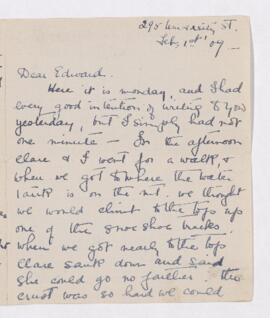 295 University St.
Feb. 1st '09 —
Dear Edward.
Here it is monday, and I had
every good intention of writing to you
yesterday, but I simply had not
one minute — In the afternoon
Clare & I went for a walk, &
when we got to where the water
tank is on the mt. we thought
we would climb to the top up
one of the snow shoe tracks.
when we got nearly to the top
Clare sank down and said
she could go no farther. the
crust was so hard we could